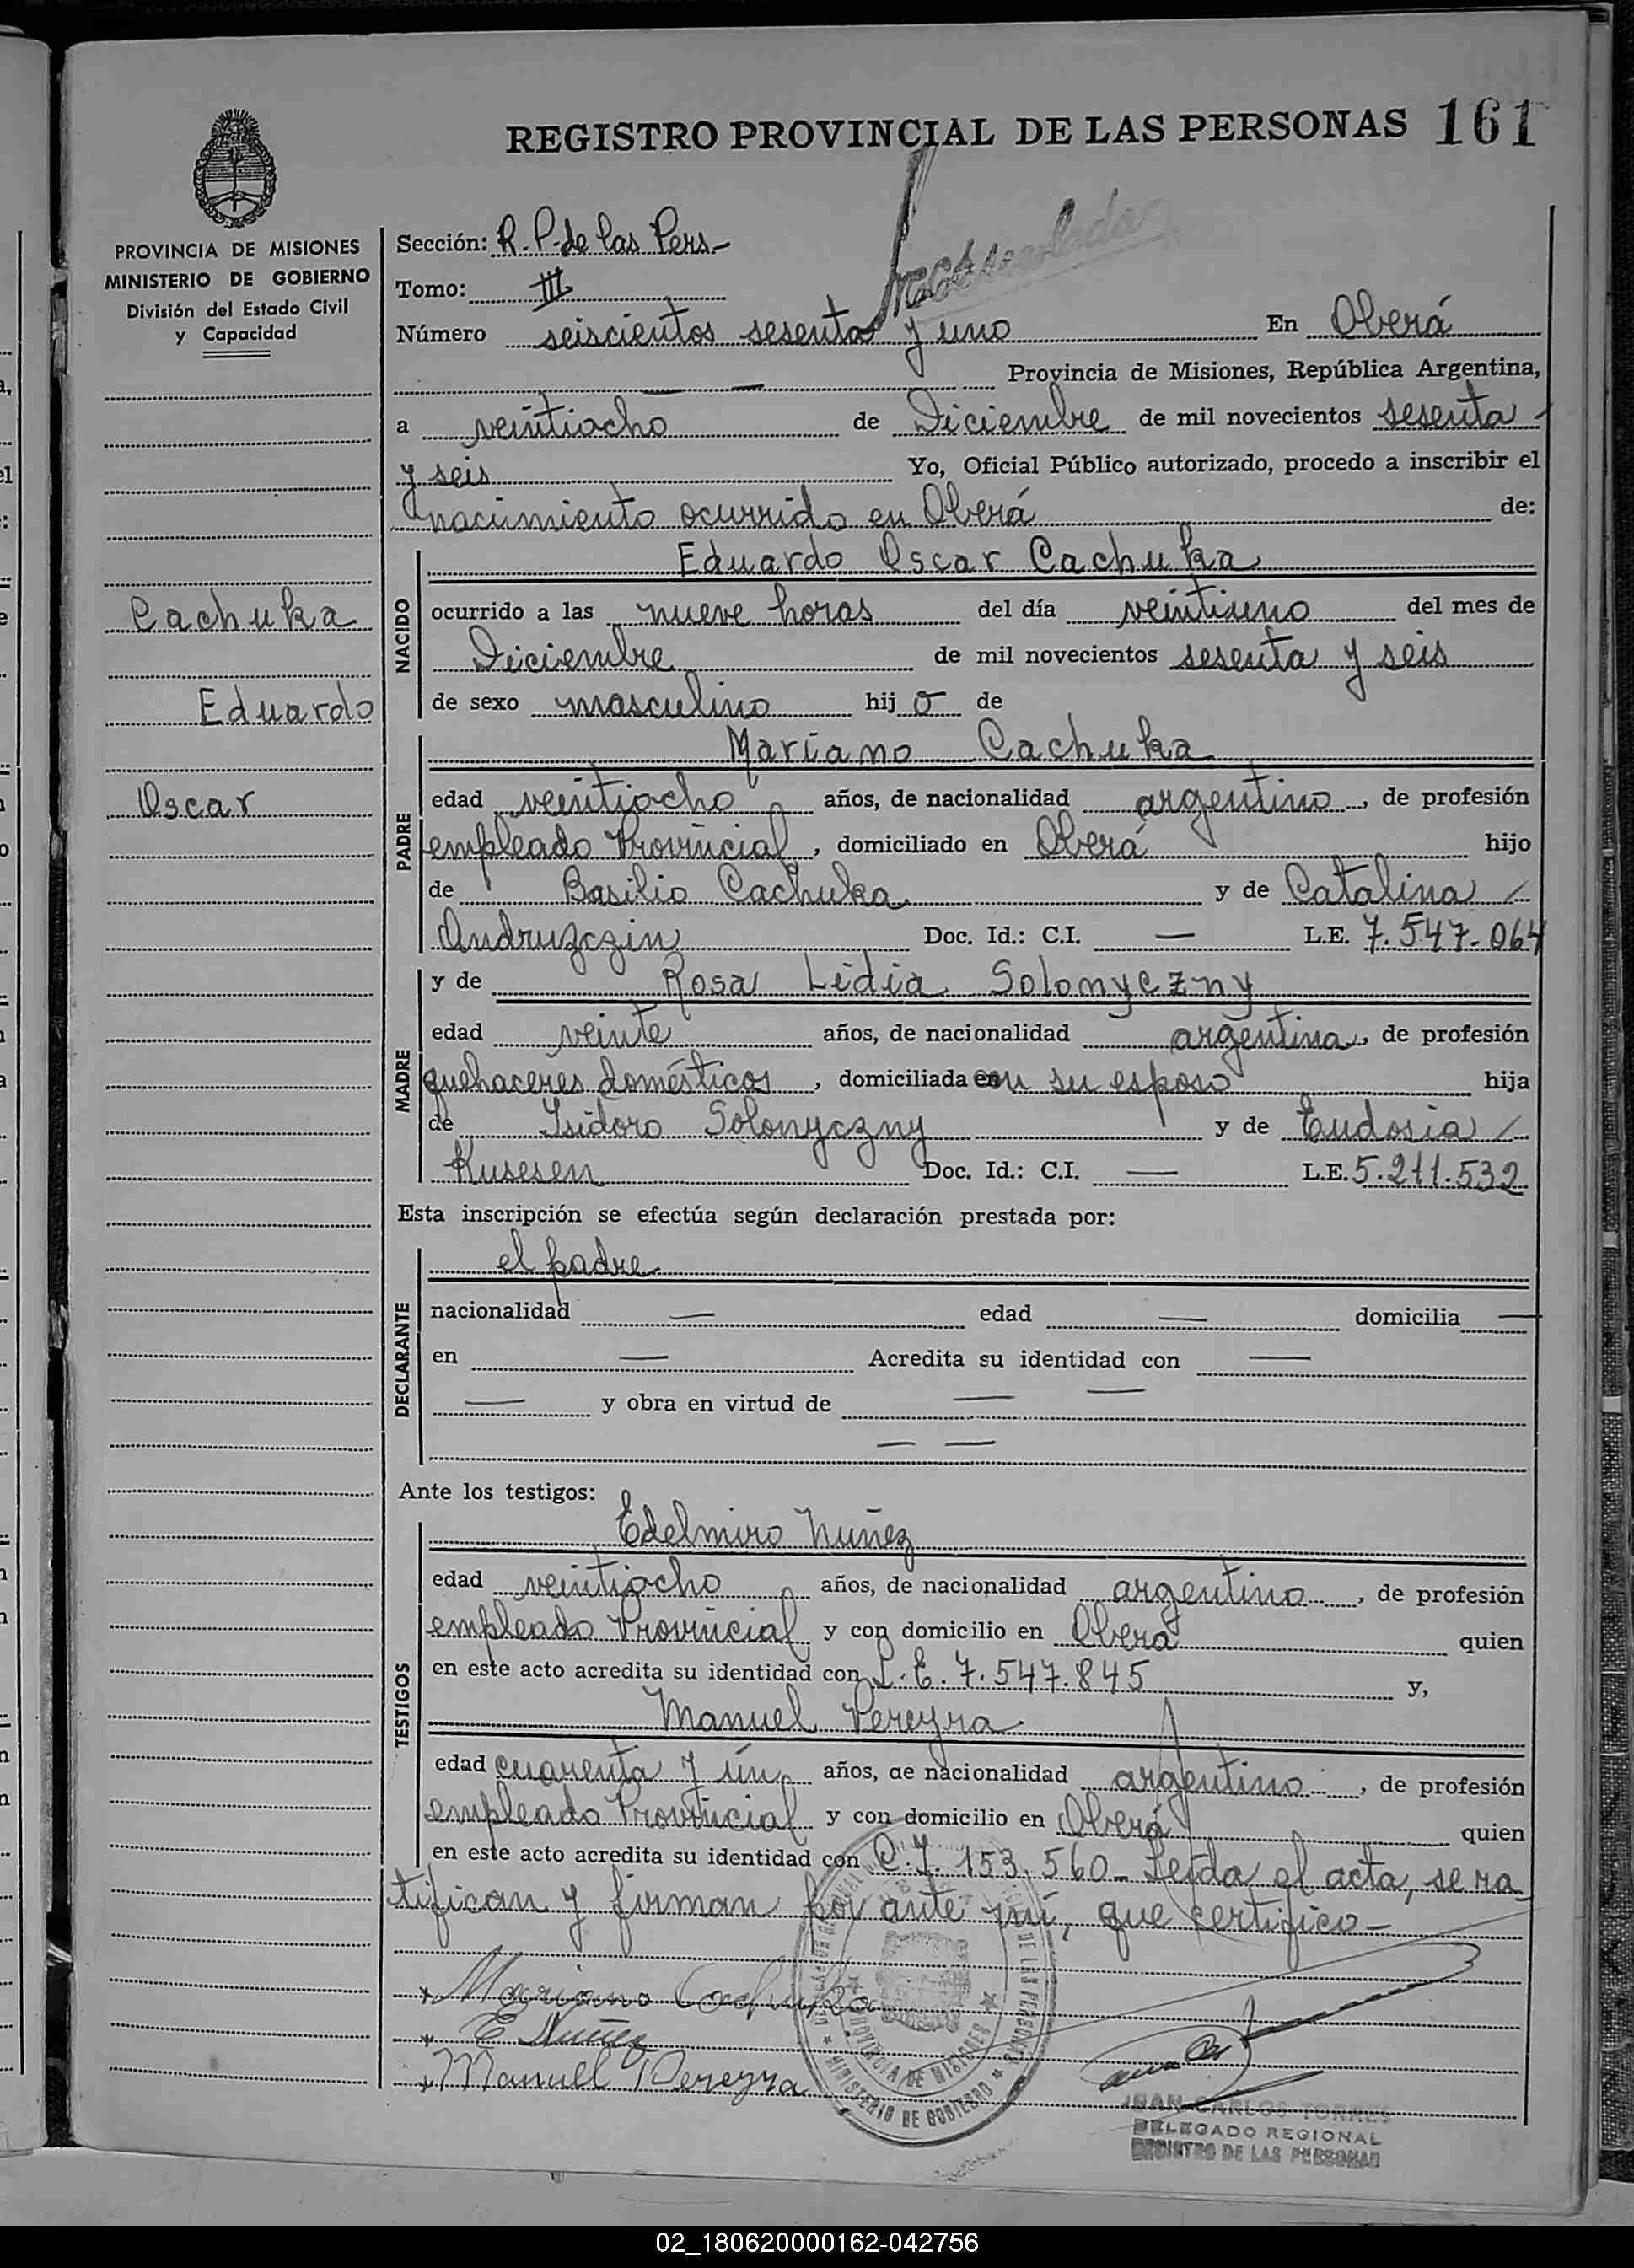 REGISTRO PROVINCIAL DE LAS PERSONAS 161
PROVINCIA DE MISIONES
MINISTERIO DE GOBIERNO
División del Estado Civil
y Capacidad
Cachuka
Eduardo
Oscar
Sección: R. P. de las Pers-
Tomo: III
Número seiscientos sesenta y uno En Oberá
Provincia de Misiones, República Argentina,
a veintiocho de Diciembre de mil novecientos sesenta
y seis Yo, Oficial Público autorizado, procedo a inscribir el
nacimiento ocurrido en Oberá de:
NACIDO
Eduardo Oscar Cachuka
ocurrido a las nueve horas del día veintiuno del mes de
Diciembre de mil novecientos sesenta y seis
de sexo masculino hijo de
PADRE
Mariano Cachuka
edad veintiocho años, de nacionalidad argentino, de profesión
empleado Provincial, domiciliado en Oberá hijo
de Basilio Cachuka y de Catalina
Andruzczin Doc. Id.: C.I. — L.E. 7.547.064
MADRE
y de Rosa Lidia Solonyczny
edad veinte años, de nacionalidad argentina, de profesión
quehaceres domésticos, domiciliada con su esposo hija
de Isidoro Solonyczny y de Eudosia
Kusesen Doc. Id.: C.I. — L.E. 5.211.532
Esta inscripción se efectúa según declaración prestada por:
DECLARANTE
el padre
nacionalidad — edad — domicilia —
en — Acredita su identidad con —
— y obra en virtud de — —
— —
Ante los testigos:
TESTIGOS
Edelmiro Nuñez
edad veintiocho años, de nacionalidad argentino, de profesión
empleado Provincial y con domicilio en Oberá quien
en este acto acredita su identidad con L.E. 7.547.845 y,
Manuel Pereyra
edad cuarenta y ún años, de nacionalidad argentino, de profesión
empleado Provincial y con domicilio en Oberá quien
en este acto acredita su identidad con C.I. 153.560- Leída el acta, se ra
tifican y firman por ante mí, que certifico-
Mariano Cachuka
E Nuñez
Manuel Pereyra
PROVINCIA DE MISIONES
MINISTERIO DE GOBIERNO
JUAN CARLOS TORRES
DELEGADO REGIONAL
REGISTRO DE LAS PERSONAS
02_180620000162-042756